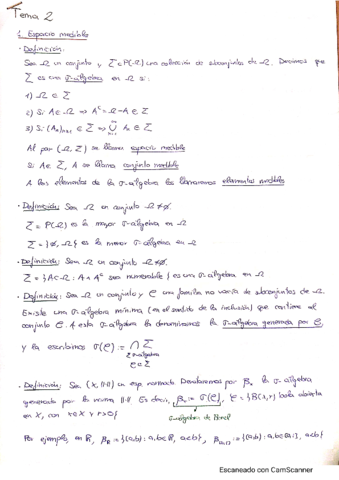 Tema 2
1. Espacio medible
· Definición:
Sea Ω un conjunto y Σ ⊂ P(Ω) una colección de subconjuntos de Ω. Decimos que
Σ es una σ-álgebra en Ω si:
1) Ω ∈ Σ
2) Si A ∈ Ω ⇒ Aᶜ = Ω - A ∈ Σ
3) Si (Aₙ)ₙ₌₁ ∈ Σ ⇒ ∪ Aₙ ∈ Σ
Al par (Ω, Σ) se llama espacio medible
Si A ∈ Σ, A se llama conjunto medible
A los elementos de la σ-álgebra los llamaremos elementos medibles
· Definición: Sea Ω un conjunto Ω ≠ ∅.
Σ = P(Ω) es la mayor σ-álgebra en Ω
Σ = {∅, Ω} es la menor σ-álgebra en Ω
· Definición: Sea Ω un conjunto Ω ≠ ∅.
Σ = {A ⊂ Ω : A ó Aᶜ sea numerable} es una σ-álgebra en Ω
· Definición: Sea Ω un conjunto y C una familia no vacía de subconjuntos de Ω.
Existe una σ-álgebra mínima (en el sentido de la inclusión) que contiene al
conjunto C. A esta σ-álgebra la denominamos la σ-álgebra generada por C,
y la escribimos σ(C) = ∩ Σ
Σ σ-álgebra
C ⊂ Σ
· Definición: Sea (X, ||·||) un esp. normado. Denotaremos por βₓ la σ-álgebra
generada por la norma ||·||. Es decir, βₓ = σ(C), C = {B(x,r) bola abierta
en X, con x ∈ X y r>0}
σ-álgebra de Borel
Por ejemplo, en ℝ, β_ℝ = {(a,b) : a,b ∈ ℝ, a<b}, β_[0,1] := {(a,b) : a,b ∈ [0,1], a<b}
Escaneado con CamScanner